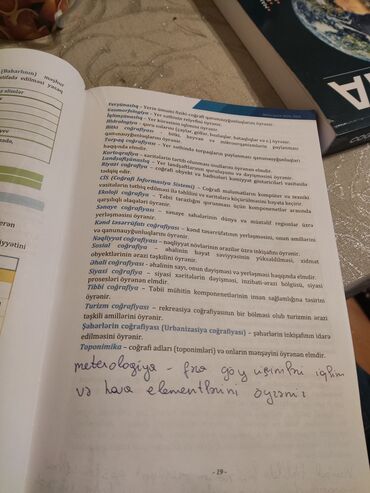 (Baharlının) məşhur
istifadə edilməsi yazaq
Yerşünaslıq – Yerin ümumi fiziki-coğrafi qanunauyğunluqlarını öyrənir.
Geomorfologiya – Yer səthinin relyefini öyrənir.
İqlimşünaslıq – Yer kürəsinin iqlimini öyrənir.
Hidrologiya – Yerin sularını (çaylar, göllər, buzlaqlar, bataqlıqlar və s.) öyrənir.
Bitki coğrafiyası – bitki, heyvan və mikroorqanizmlərin yayılması
qanunauyğunluqlarını öyrənir.
Torpaq coğrafiyası – Yer səthində torpaqların yayılması qanunauyğunluqları
haqqında elmdir.
Kartoqrafiya – xəritələrin tərtib olunması üsullarını öyrənən elmdir.
Landşaftşünaslıq – Yer landşaftlarının quruluşunu və dəyişməsini öyrənir.
Riyazi coğrafiya – coğrafi obyekt və hadisələri kəmiyyət göstəriciləri vasitəsilə
tədqiq edir.
CİS (Coğrafi İnformasiya Sistemi) – Coğrafi məlumatların kompüter və texniki
vasitələrin tətbiq edilməsi ilə təhlilini və xəritələrə köçürülməsini həyata keçirir.
Ekoloji coğrafiya – Təbii fərazlığın qorunması üçün komponentlər arasında
qarşılıqlı əlaqələri öyrənir.
Sənaye coğrafiyası – sənaye sahələrinin dünya və müstəqil regionlar üzrə
yerləşməsini öyrənir.
Kənd təsərrüfatı coğrafiyası – kənd təsərrüfatının yerləşməsini, onun amillərini
və qanunauyğunluqlarını öyrənir.
Nəqliyyat coğrafiyası – nəqliyyat növlərinin ərazilər üzrə inkişafını öyrənir.
Sosial coğrafiya – əhalinin həyat səviyyəsinin yüksəldilməsi, xidmət
obyektlərinin ərazi təşkilini öyrənir.
Əhali coğrafiyası – əhalinin sayı, onun dəyişməsi və yerləşməsi haqqında elmdir.
Siyasi coğrafiya – siyasi xəritələrin dəyişməsi, inzibati-ərazi bölgüsü, siyasi
prosesləri öyrənən elmdir.
Tibbi coğrafiya – Təbii mühitin komponentlərinin insan sağlamlığına təsirini
öyrənir.
Turizm coğrafiyası – rekreasiya coğrafiyasının bir bölməsi olub turizmin ərazi
təşkili amillərini öyrənir.
Şəhərlərin coğrafiyası (Urbanizasiya coğrafiyası) – şəhərlərin inkişafının idarə
edilməsini öyrənir.
Toponimika – coğrafi adları (toponimləri) və onların mənşəyini öyrənən elmdir.
meterologiya - göy iqlim
və hava elementlərini öyrənir
- 19 -